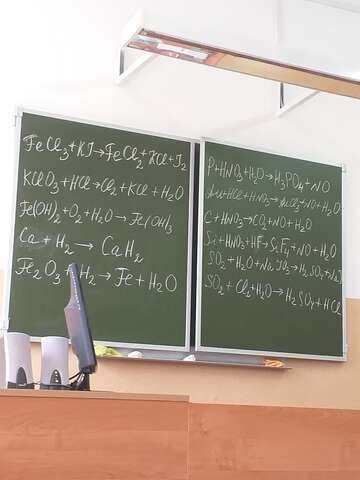 FeCl₃+KI→FeCl₂+KCl+I₂
KClO₃+HCl→Cl₂+KCl+H₂O
Fe(OH)₂+O₂+H₂O→Fe(OH)₃
Ca+H₂→CaH₂
Fe₂O₃+H₂→Fe+H₂O
P+HNO₃+H₂O→H₃PO₄+NO
Au+HCl+HNO₃→AuCl₃+NO+H₂O
C+HNO₃→CO₂+NO+H₂O
Si+HNO₃+HF→SiF₄+NO+H₂O
SO₂+H₂O+NaIO₃→H₂SO₄+NaI
SO₂+Cl₂+H₂O→H₂SO₄+HCl